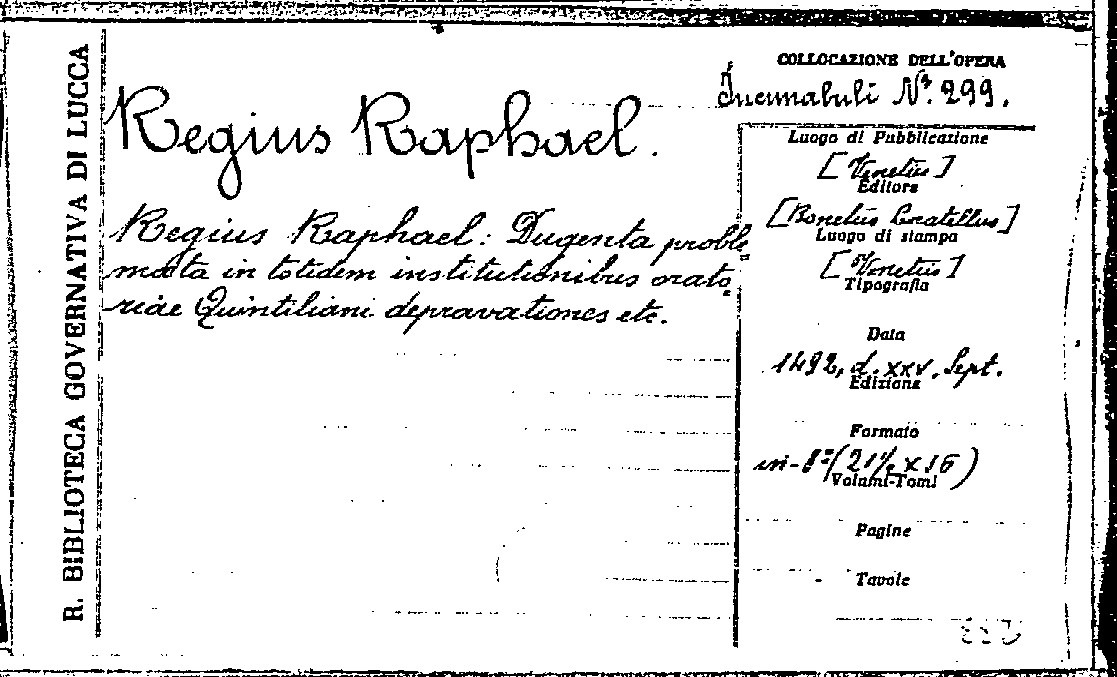 R. BIBLIOTECA GOVERNATIVA DI LUCCA
Regius Raphael.
Regius Raphael: Dugenta proble=
mata in totidem institutionibus orato=
riae Quintiliani depravationes etc.
COLLOCAZIONE DELL'OPERA
Incunabuli N.º 299.
Luogo di Pubblicazione
[Venetiis]
Editore
[Bonetus Locatellus]
Luogo di stampa
[Venetiis]
Tipografia
Data
1492, d. xxv. Sept.
Edizione
Formato
in-8º (21½ x 16)
Volumi-Tomi
Pagine
Tavole